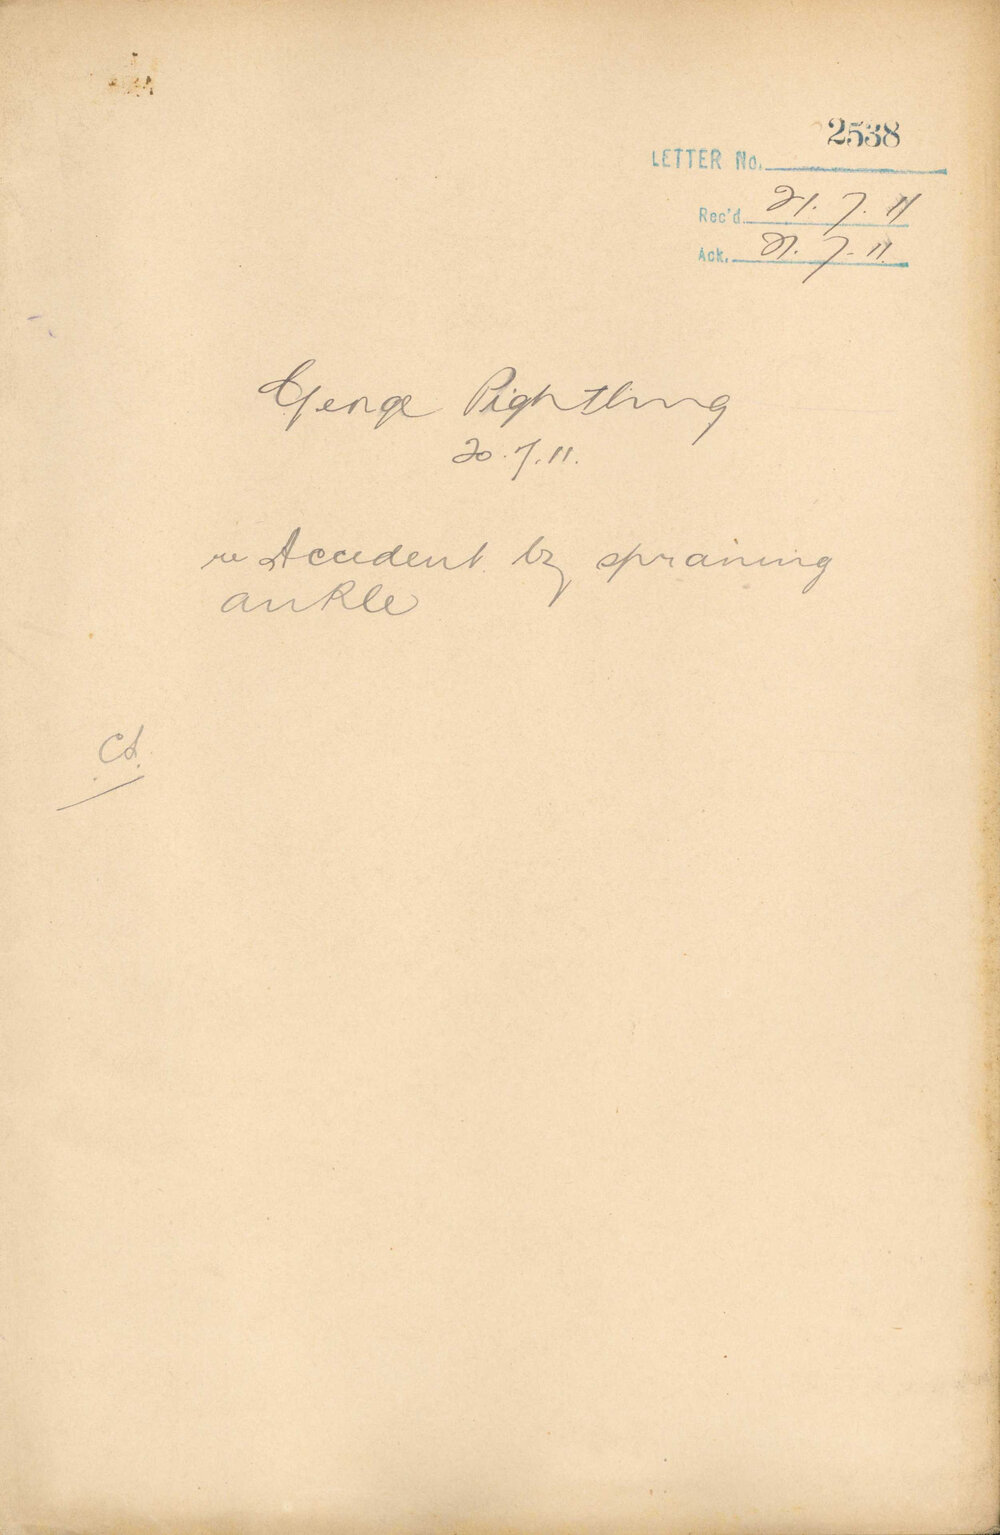 2538
LETTER No.
Rec'd 21.7.11
Ack. 21.7.11.
George Pightling
20.7.11.
re Accident by spraining
ankle